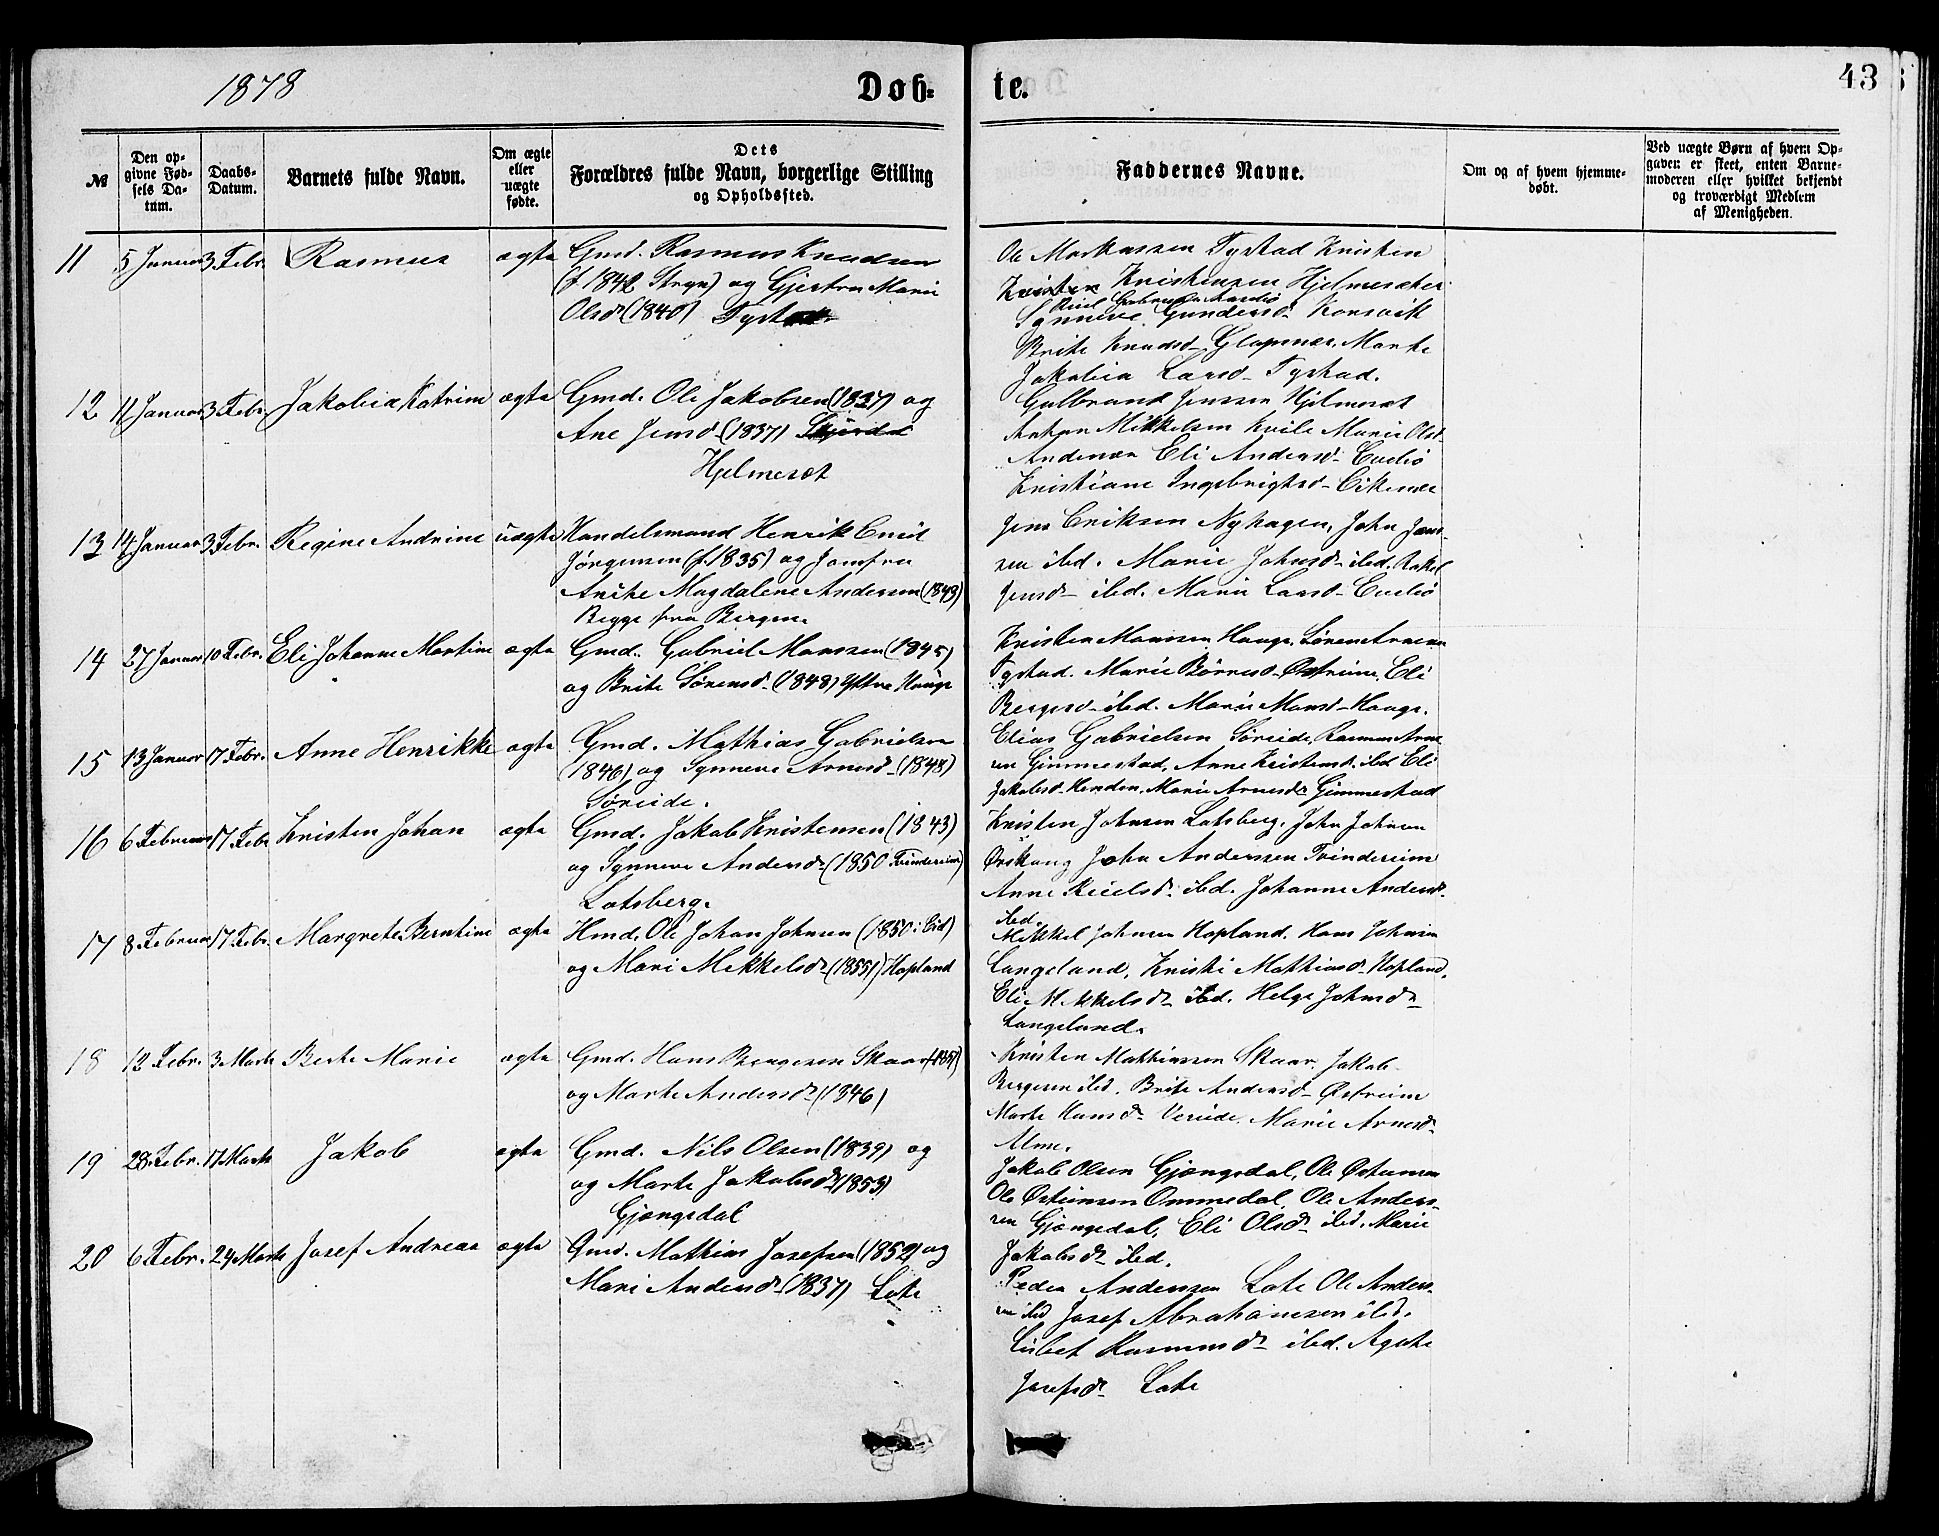 1878
Døb-
te.
43
№
Den op-
givne Fød-
sels Da-
tum.
Daabs-
Datum.
Barnets fulde Navn.
Om ægte
eller
uægte
fødte.
Dets
Forældres fulde Navn, borgerlige Stilling
og Opholdssted.
Faddernes Navne.
Om og af hvem hjemme-
døbt.
Ved uægte Børn af hvem Op-
gaven er skeet, enten Barne-
moderen eller hvilket bekjendt
og troværdigt Medlem
af Menigheden.
11 5 Januar 3 Febr. Rasmus ægte Gmd. Rasmus Knudsen
(f. 1842 Stryn) og Gjertru Marie
Olsdr (1840) Tystad
Ole Markussen Tystad Kristen
Kristensen Hjelmeseter
Synneve Gundersd. Korsvik
Brite Knudsd. Glapnes. Marte
Jakobia Larsd. Tystad.
12 11 Januar 3 Febr. Jakobia Katrine ægte Gmd. Ole Jakobsen (1837) og
Ane Jensd. (1837)
Hjelmeset
Gulbrand Jenssen Hjelmeset
Anton Mikkelsen Kvile Marie Olsd.
Andenæs Eli Andersd. Evebø
Kristiane Ingebrigtsd. Eikenes
13 14 Januar 3 Febr. Regine Andrine uægte Handelsmand Henrik Emil
Jørgensen (f. 1835) og Jomfru
Anite Magdalene Andersen (1843)
Begge fra Bergen.
Jens Eriksen Nyhagen, John Jens-
sen ibd. Marie Johnsd. ibd. Rakel
Jensd. ibd. Marie Larsd. Evebø
14 27 Januar 10 Febr. Eli Johanne Martine ægte Gmd. Gabriel Monssen (1845)
og Brite Sørensd. (1848) Yttre Hauge
Kristen Monssen Hauge, Søren Arnesen
Tystad. Marie Børresd. Østreim, Eli
Bergesd. ibd. Marie Monsd. Hauge.
15 13 Januar 17 Febr. Anne Henrikke ægte Gmd. Mathias Gabrielsen
(1846) og Synneve Arnesd. (1848)
Søreide.
Elias Gabrielsen Søreide, Rasmus Arne
sen Gimmestad, Anne Kristensd. ibd Eli
Jakobsd. Henden, Marie Arnesdr Gimmestad
16 6 Februar 17 Febr Kristen Johan ægte Gmd. Jakob Kristensen (1843)
og Synneve Andersdr (1850 Tvindereim)
Lotsberg.
Kristen Johnsen Lotsberg, John Johnsen
Ørskaug John Anderssen Tvindereim
Anne Reielsd. ibd. Johanne Andersdr
ibd.
17 8 Februar 17 Febr. Margrete Berntine ægte Hmd. Ole Johan Johnsen (1850 i Eid)
og Mari Mikkelsdr (1855) Hopland
Mikkel Johnsen Hopland. Hans Johnsen
Langeland, Kristi Mathiasd. Hopland,
Eli Mikkelsdr ibd. Helge Johnsdr
Langeland.
18 12 Febr. 3 Marts Berte Marie ægte Gmd. Hans Bergesen Skaar
og Marte Andersdr (1846)
Kristen Mathiassen Skaar, Jakob
Bergesen ibd. Brite Andersd. Østreim
Marte Hansdr Vereide. Marie Arnesd.
Alme.
19 28 Febr. 17 Marts Jakob ægte Gmd. Nils Olsen (1839) og
og Marte Jakobsdr (1853)
Gjengsdal
Jakob Olsen Gjengsdal, Ole Østensen
Ole Østensen Ommedal, Ole Anders-
sen Gjengsdal, Eli Olsdr ibd. Marie
Jakobsdr ibd.
20 6 Febr. 24 Marts Josef Andreas ægte Gmd. Mathias Josefsen (1852) og
Mari Andersdr (1837) Lote
Peder Anderssen Lote Ole Anders-
sen ibd Josef Abrahamsen ibd.
Lisbet Rasmusdr ibd. Agate
Josefsdr Lote